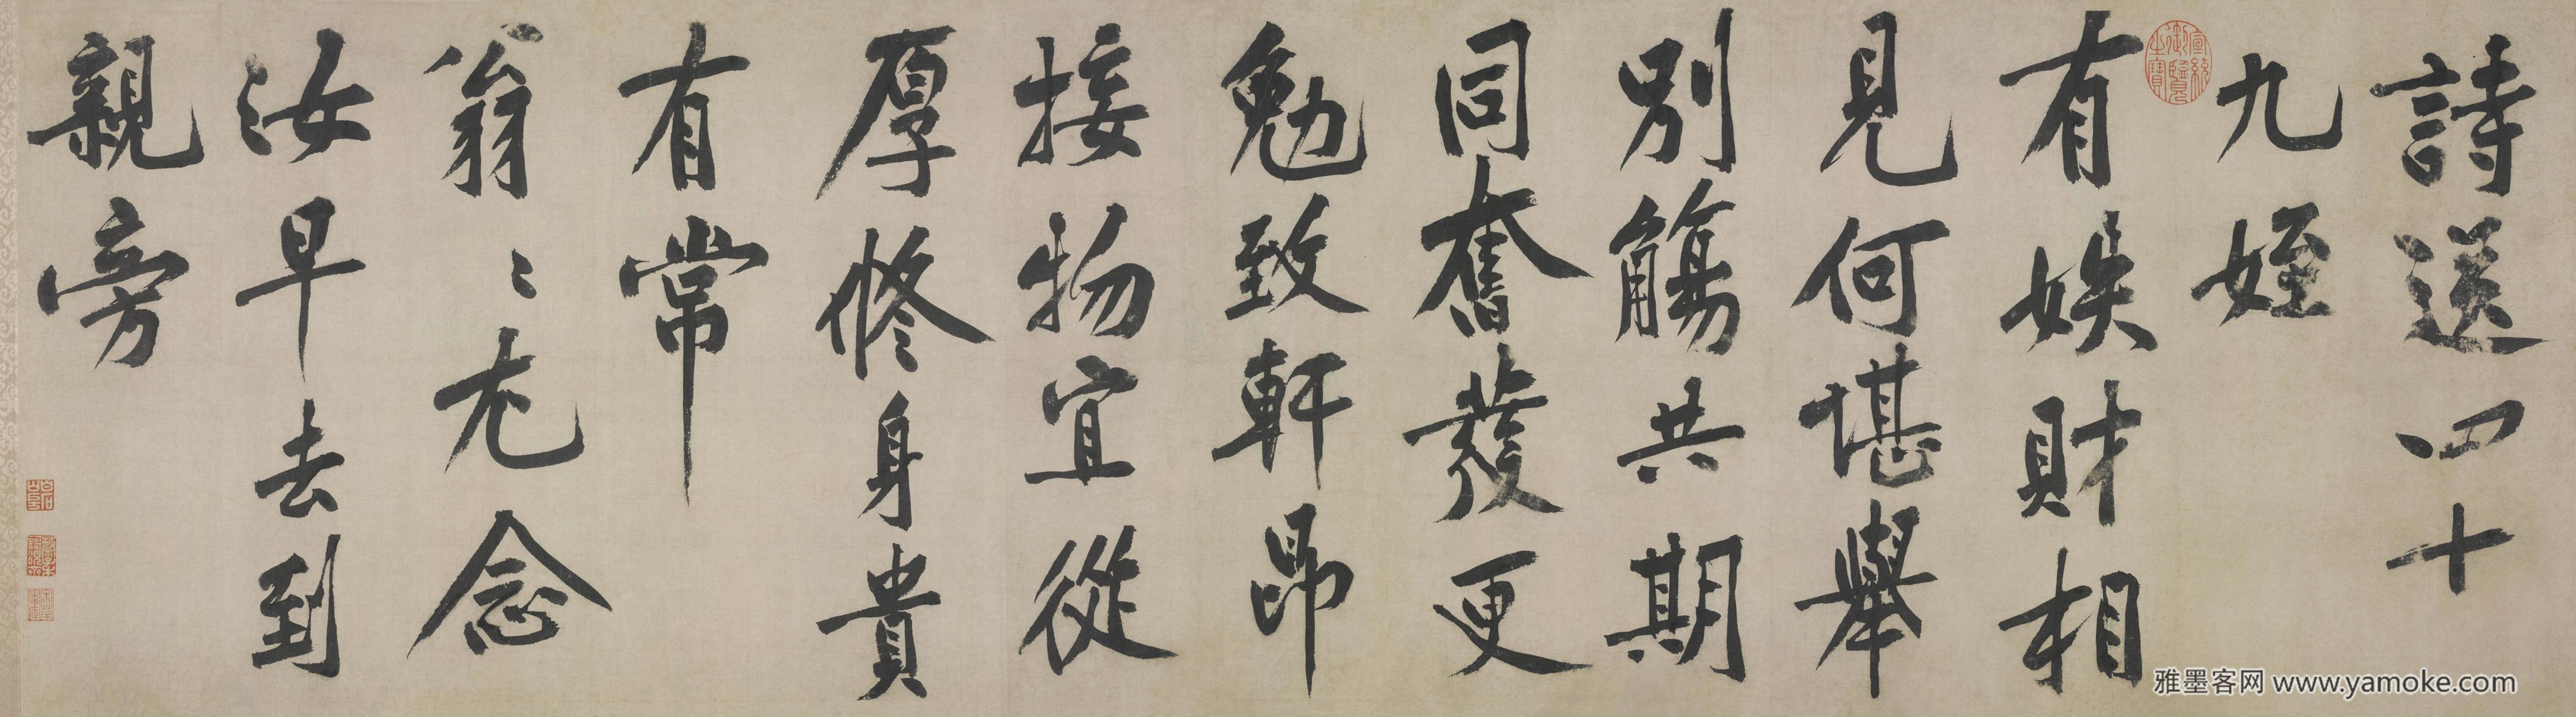 詩送四十
九姪
有娛財相
見何堪舉
別觴共期
同奮發更
勉致軒昂
接物宜從
厚修身貴
有常
翁〻尤念
汝早去到
親旁
宣統御覽之寶
雅墨客网 www.yamoke.com